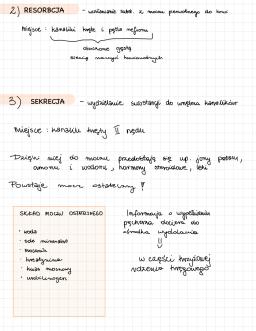 2) RESORBCJA - wchłanianie subst. z moczu pierwotnego do krwi
Miejsce: kanaliki kręte i pętla nefronu
otoczone gęstą
siecią naczyń krwionośnych
3) SEKRECJA - wydzielanie substancji do wnętrza kanalików
Miejsce: kanalik kręty II rzędu
- Dzięki niej do moczu przedostają się np. jony potasu,
amonu i wodoru, hormony steroidowe, leki
Powstaje mocz ostateczny!
SKŁAD MOCZU OSTATECZNEGO
• woda
• sole mineralne
• mocznik
• kreatynina
• kwas moczowy
• urobilinogen
Informacja o wypełnieniu
pęcherza dociera do
ośrodka wydalania
w części krzyżowej
rdzenia kręgowego